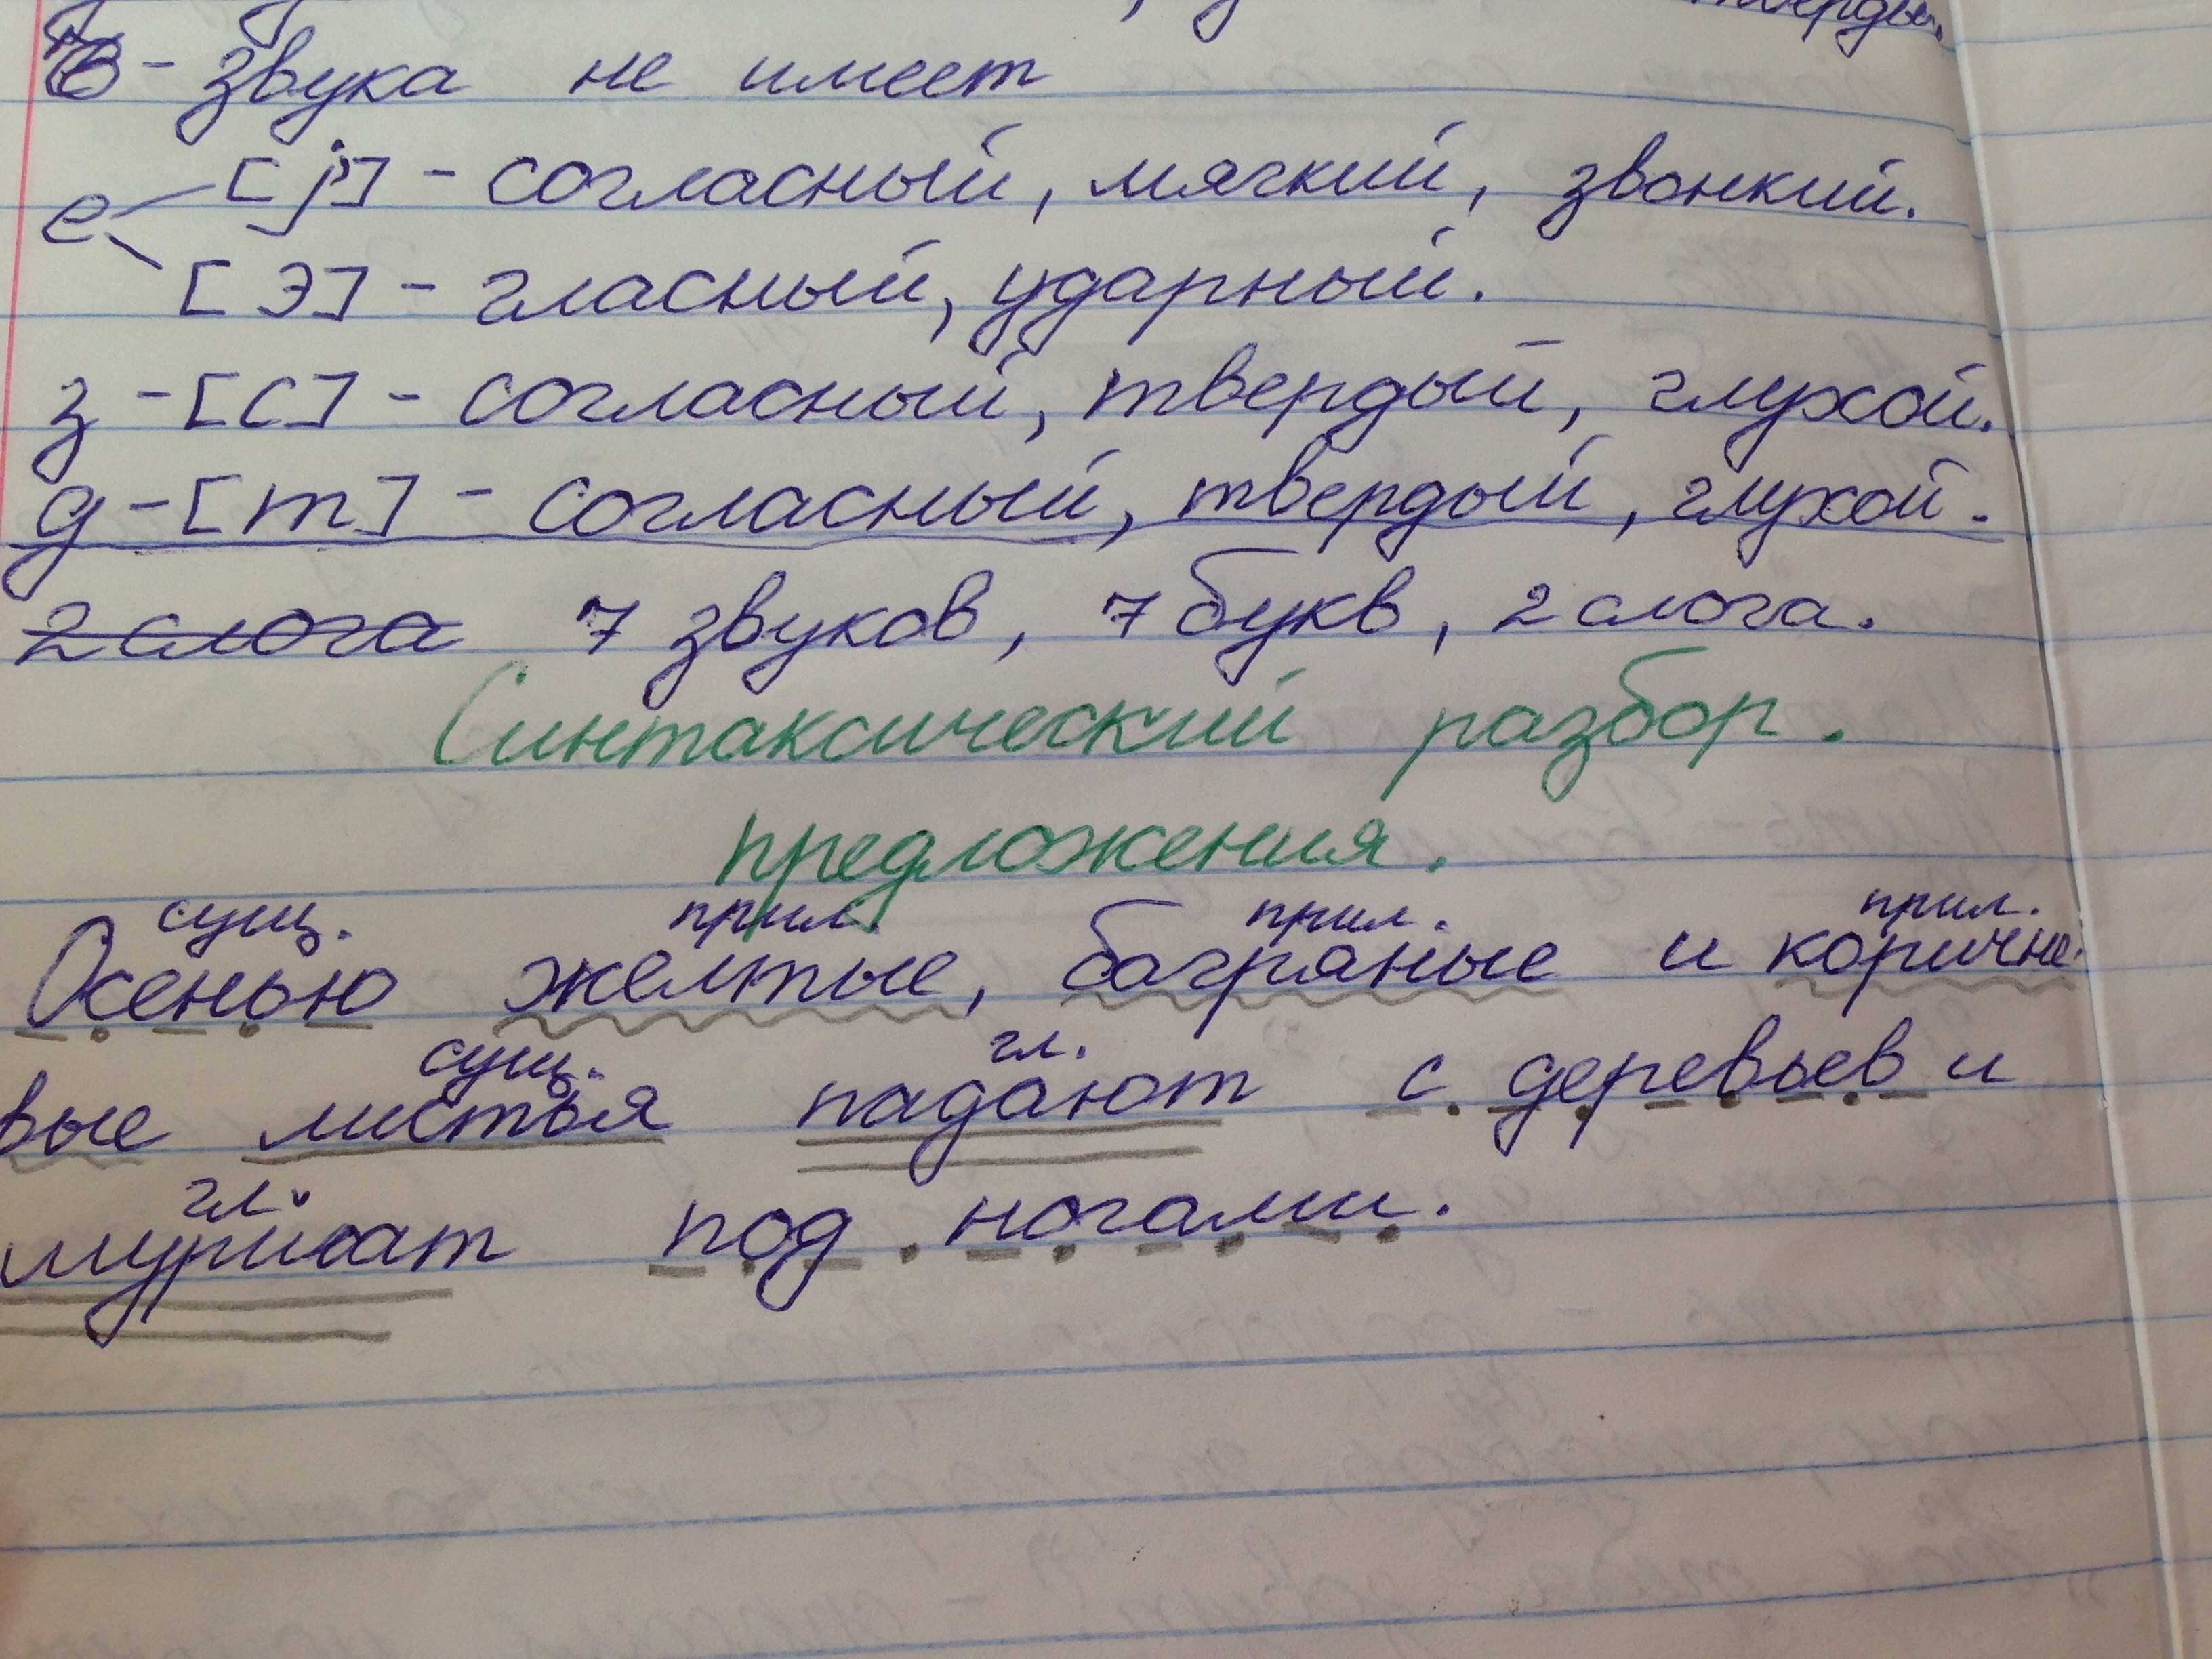 ъ - звука не имеет
е [j] - согласный, мягкий, звонкий.
[э] - гласный, ударный.
з - [с] - согласный, твердый, глухой.
д - [т] - согласный, твердый, глухой.
2 слога 7 звуков, 7 букв, 2 слога.
Синтаксический разбор.
предложения.
сущ. прил. прил. прил.
Осенью желтые, багряные и коричне-
сущ. гл.
вые листья падают с деревьев и
гл.
шуршат под ногами.